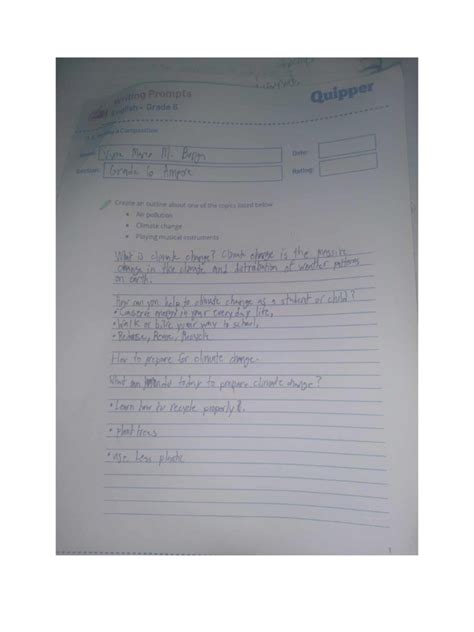 Writing Prompts
Quipper
English - Grade 6
Composition
Name: Marie M.
Date:
Section: Grade 6 Ampere
Rating:
Create an outline about one of the topics listed below
• Air pollution
• Climate change
• Playing musical instruments
What is climate change? Climate change is the massive
change in the climate and of weather patterns
on earth.
How can you help to climate change as a student or child?
• Conserve energy in your everyday life.
• Walk or bike your way to school,
• Reduse, Reuse, Recycle
How to prepare for climate change.
What can do today to prepare climate change?
• Learn how to recycle properly
• plant trees
• use less plastic
1